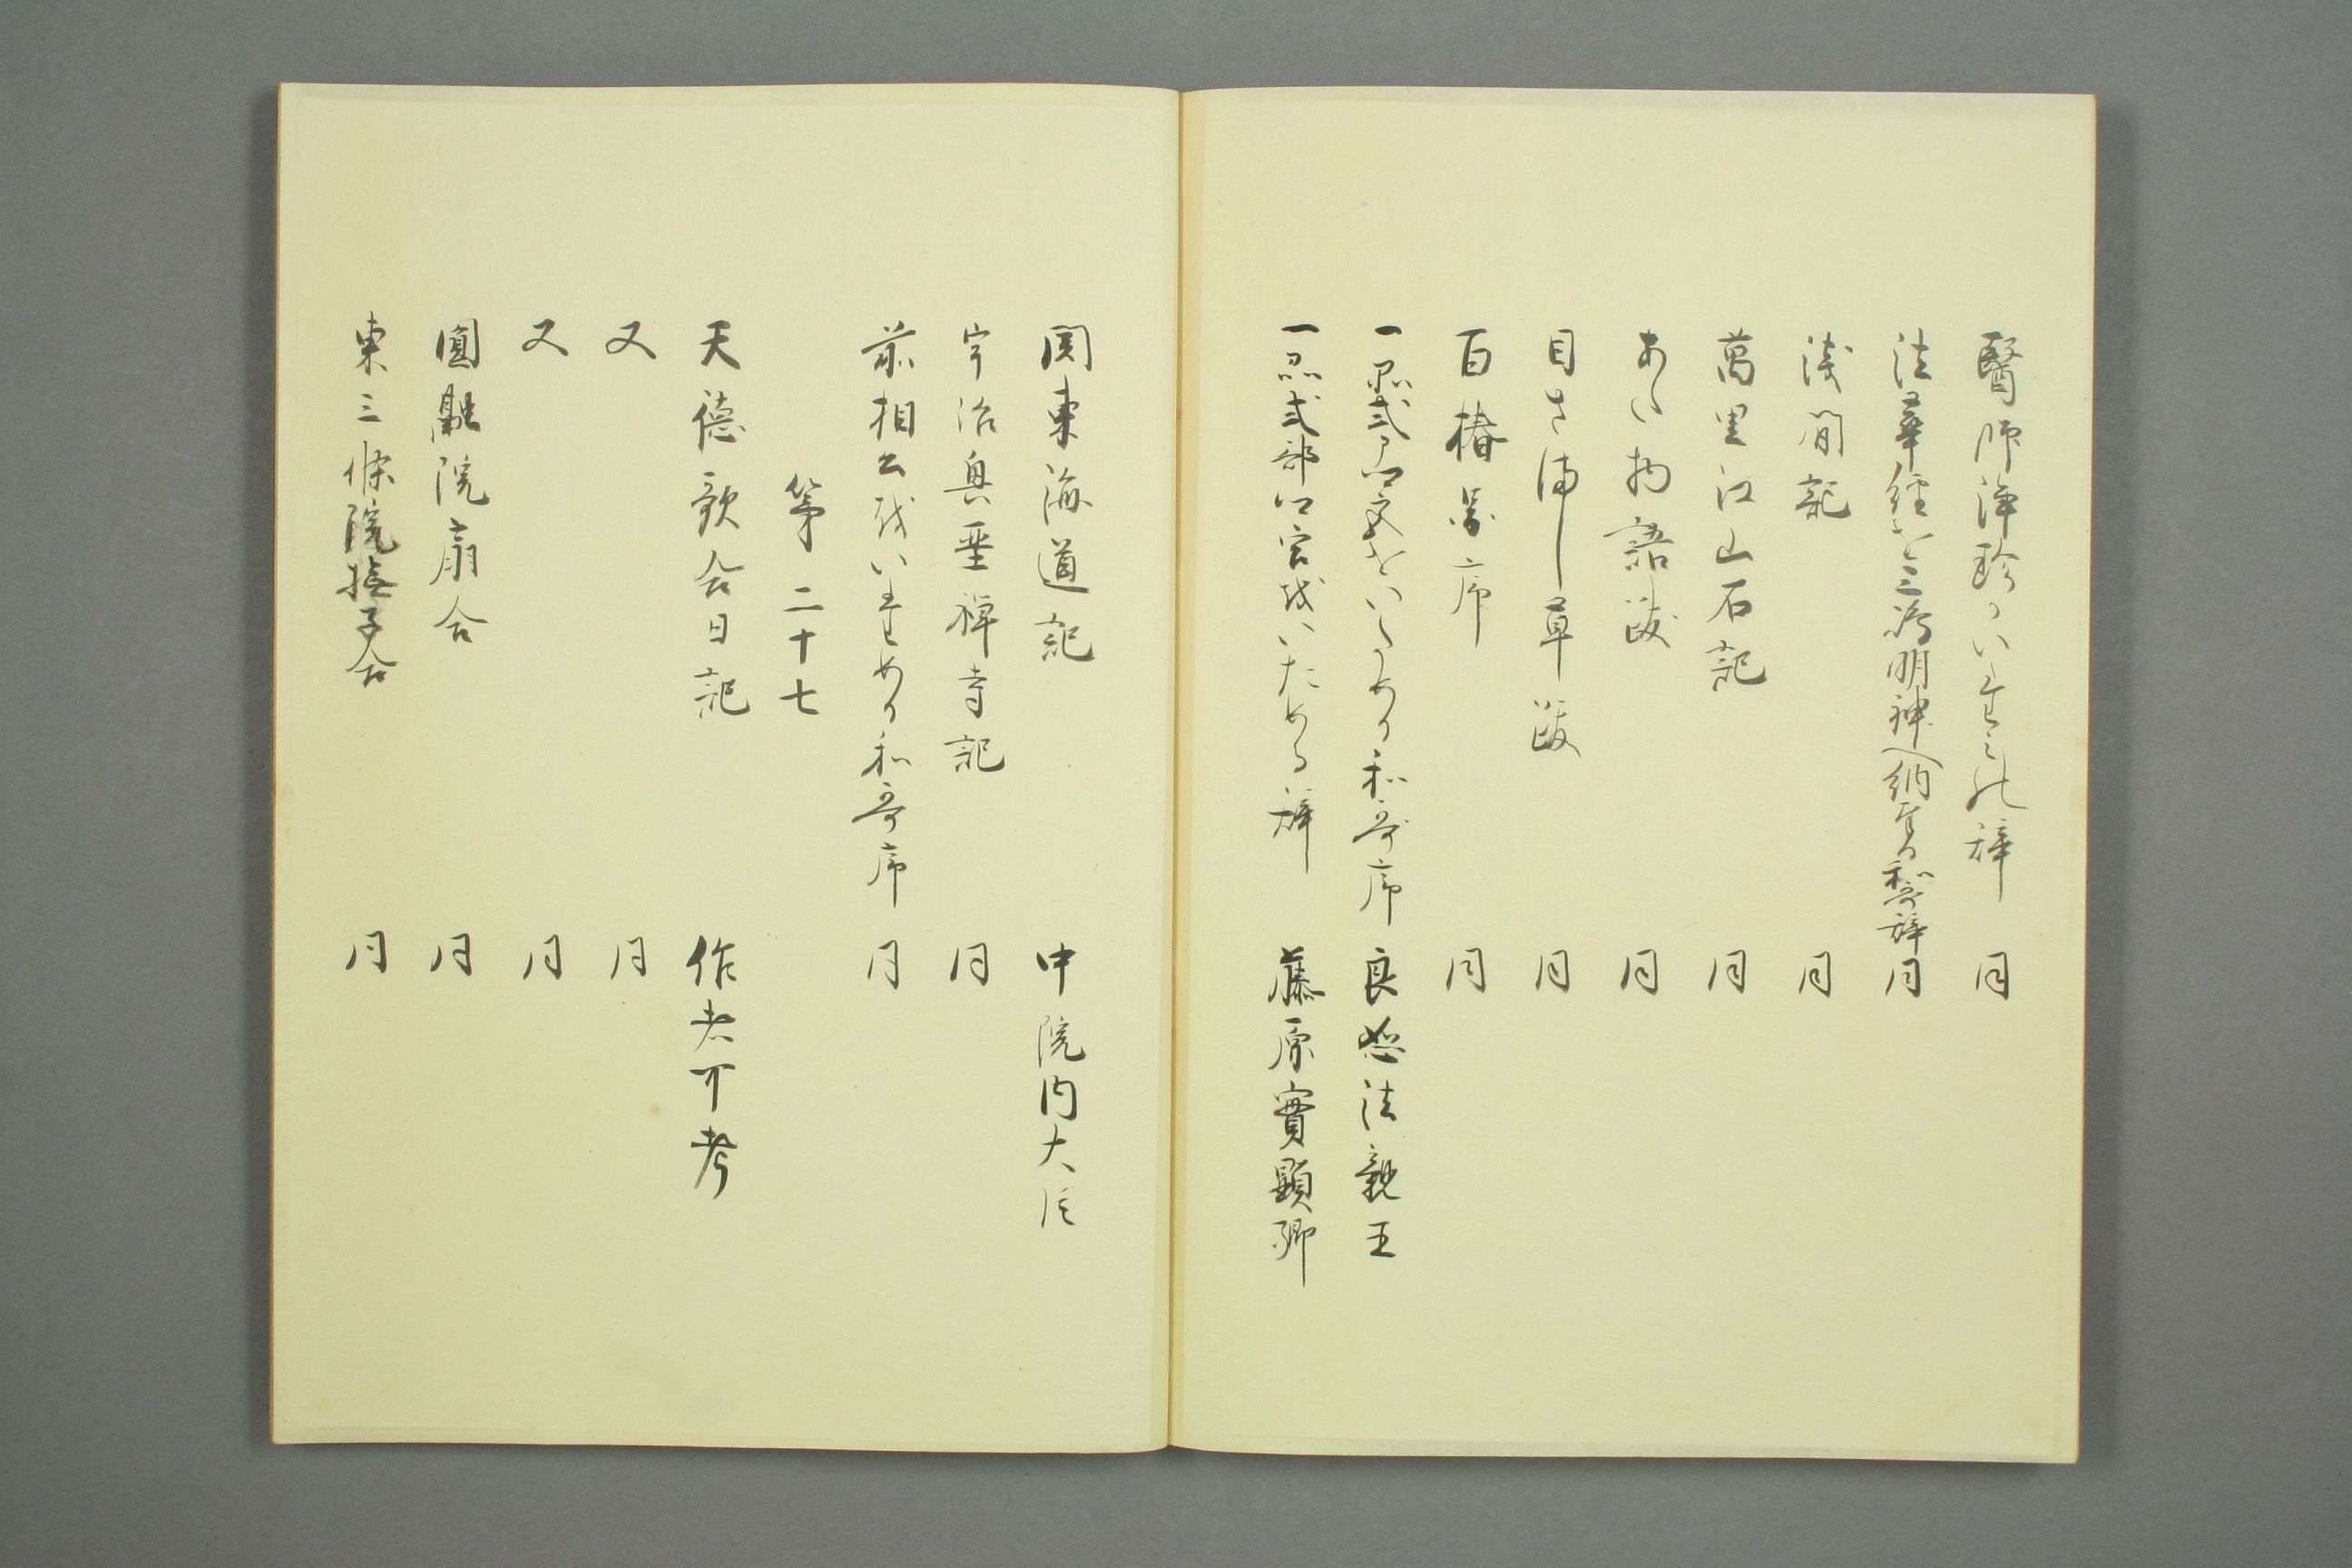 醫師浄珍かいたみの辞 同
法華經を三嶋明神へ納る和哥辞 同
浅間記 同
萬里江山石記 同
あた物語跋 同
目さまし草跋 同
百椿圖序 同
一品式部卿宮をいためる和哥序 良恕法親王
一品式部卿宮をいためる辞 藤原實顕卿
関東海道記 中院内大臣
宇治興聖禅寺記 同
前相公をいためる和哥序 同
第二十七
天徳歌合日記 作者可考
又 同
又 同
圓融院扇合 同
東三條院撫子合 同